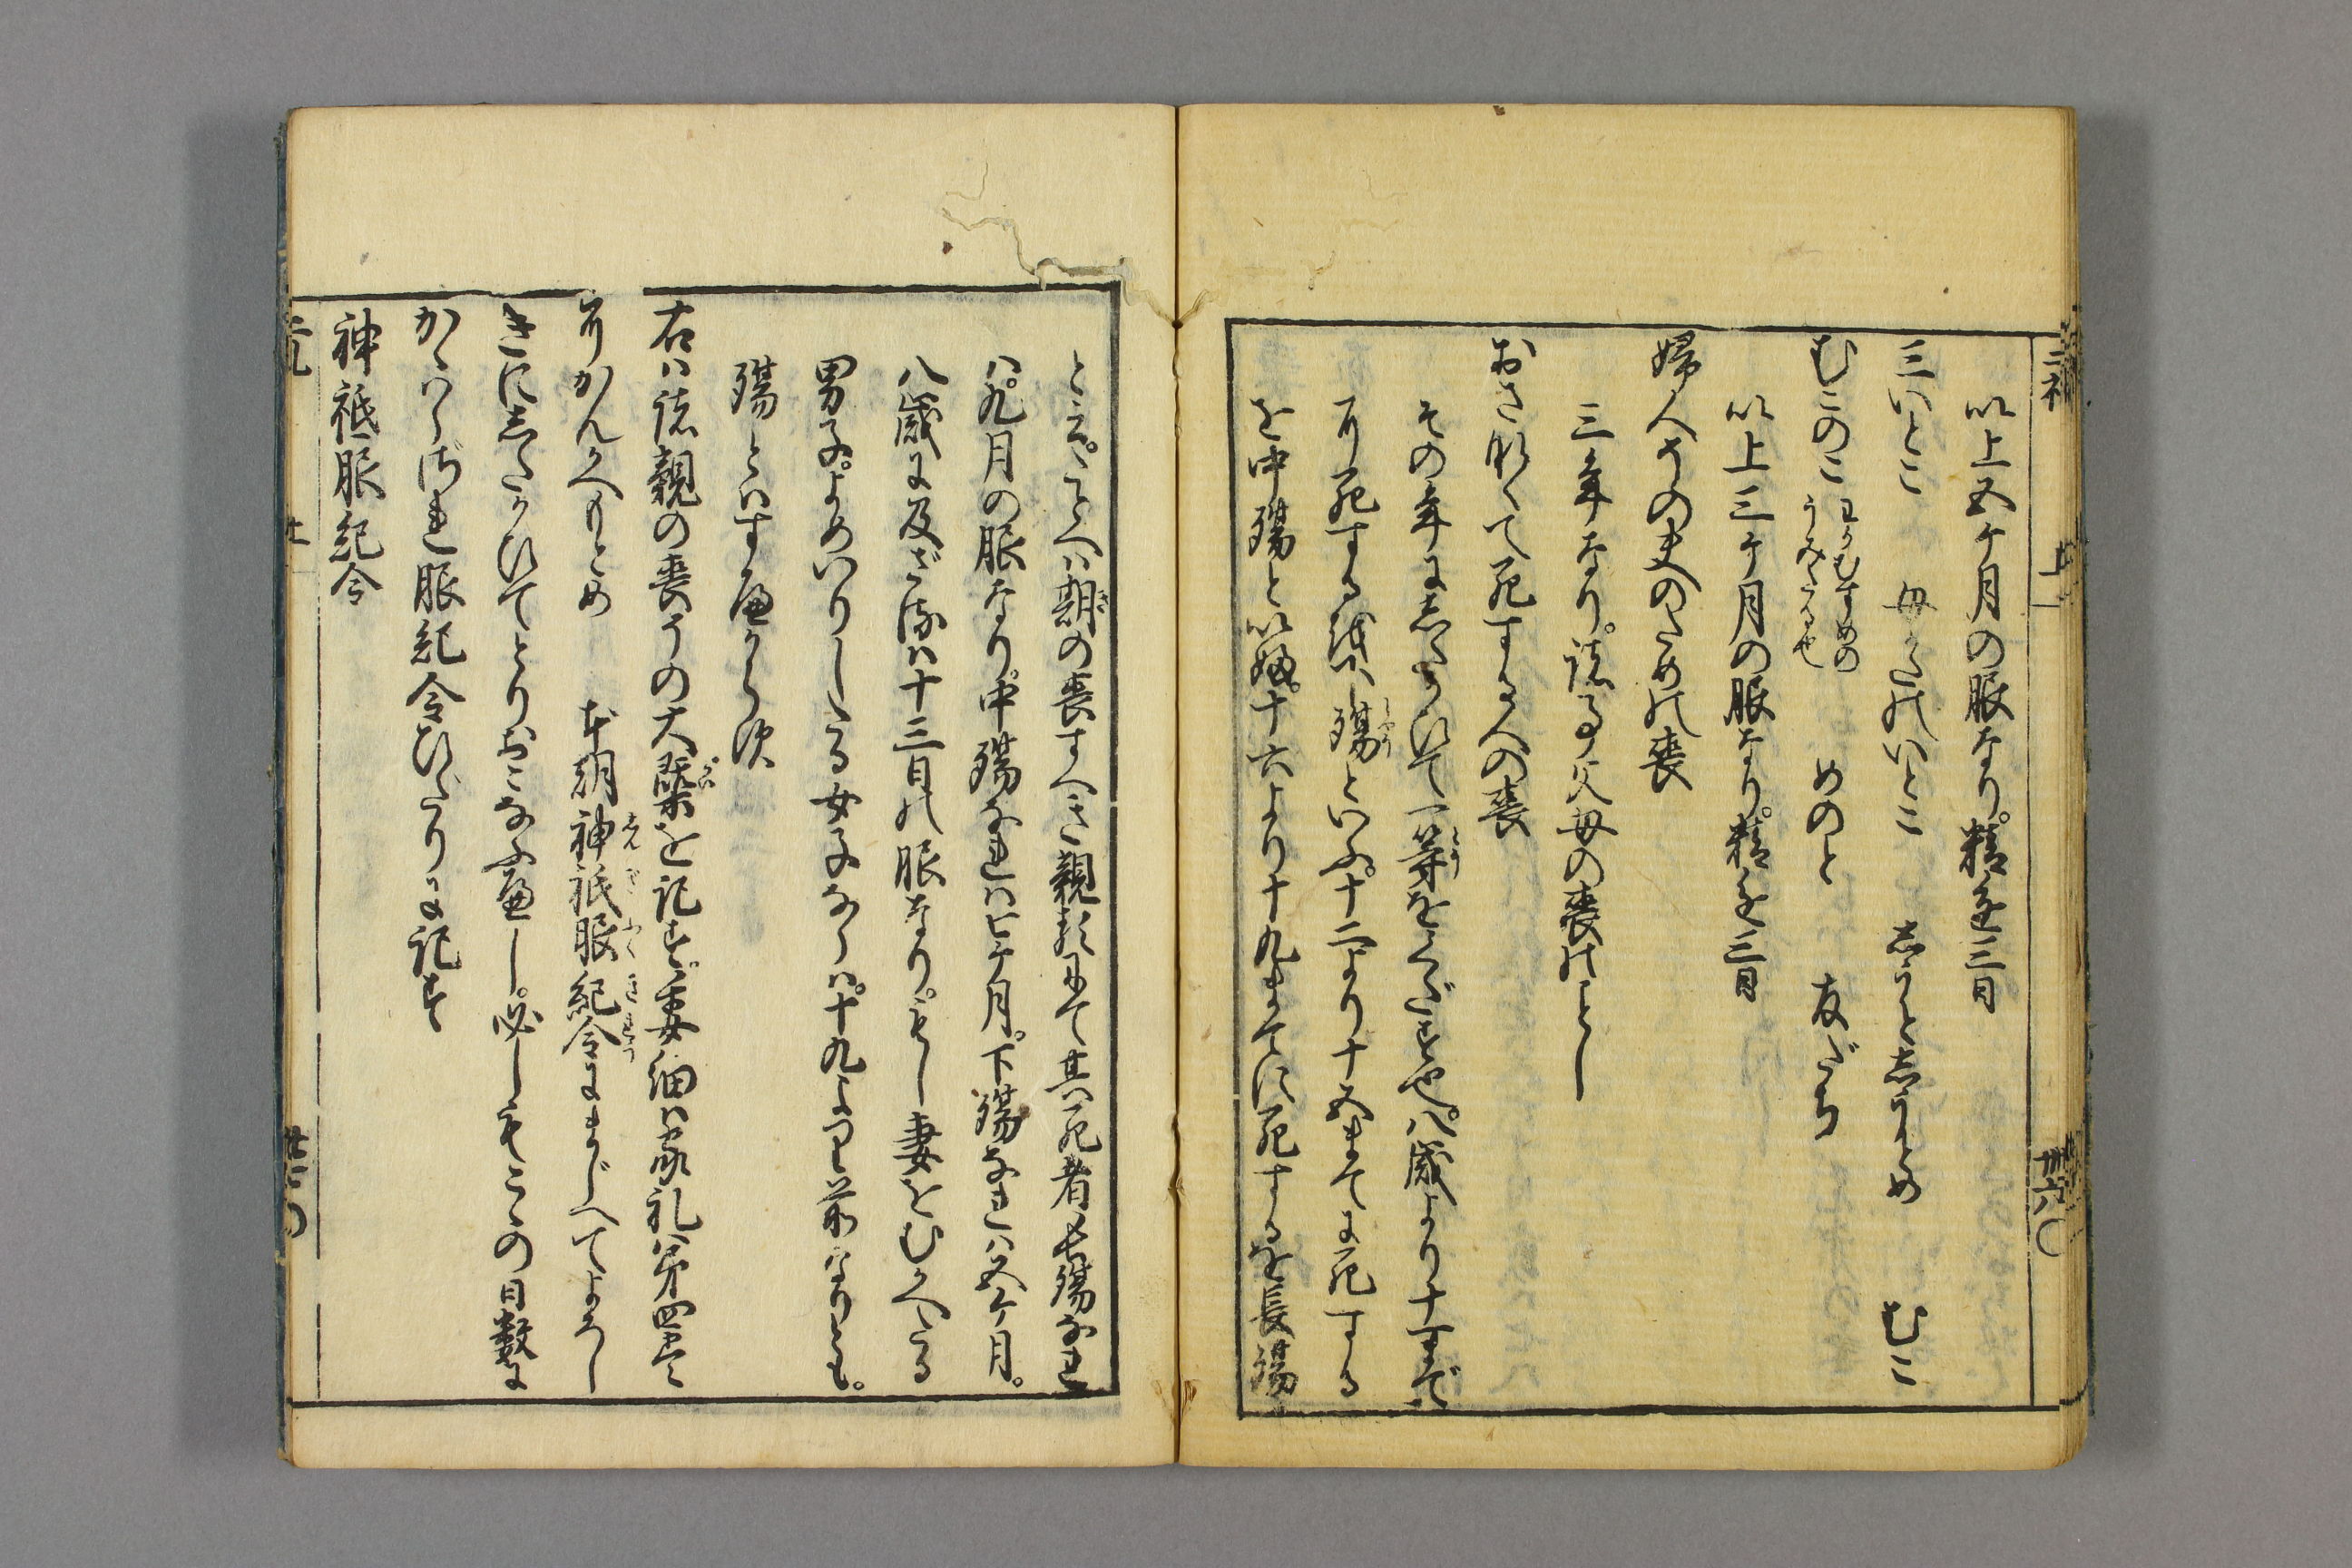 以上五ヶ月の服なり。精進三日
三いとこ 母かたのいとこ しうとしうとめ むこ
むこのこ わかむすめの
うみたる也 めのと 友だち
以上三ヶ月の服なり。精進三日
婦人その夫のための喪
三年なり。諸事父母の喪のことし
おさなくて死する人の喪
その年にしたかひて一等をくだす也。八歳より十一まで
に死するを下殤といふ。十二より十五まてに死する
を中殤といふ。十六より十九まてに死するを長殤
といふ。たとへは期の喪すへき親類にて其死者長殤なれ
は。九月の服なり。中殤なれは七ヶ月。下殤なれは五ヶ月。
八歳に及ざるは十三日の服なり。もし妻をむかへたる
男子。よめいりしたる女子ならは。十九より前なりとも。
殤とはすべからず
右は諸親の喪その大槩を記す。委細は家礼第四巻
にかんかへもとめ 本朝神祇服紀令にまじへてよろし
きにしたかひてとりおこなふべし。必しもこゝの日数に
かゝはらざれ服紀令ひだりに記す
神祇服紀令